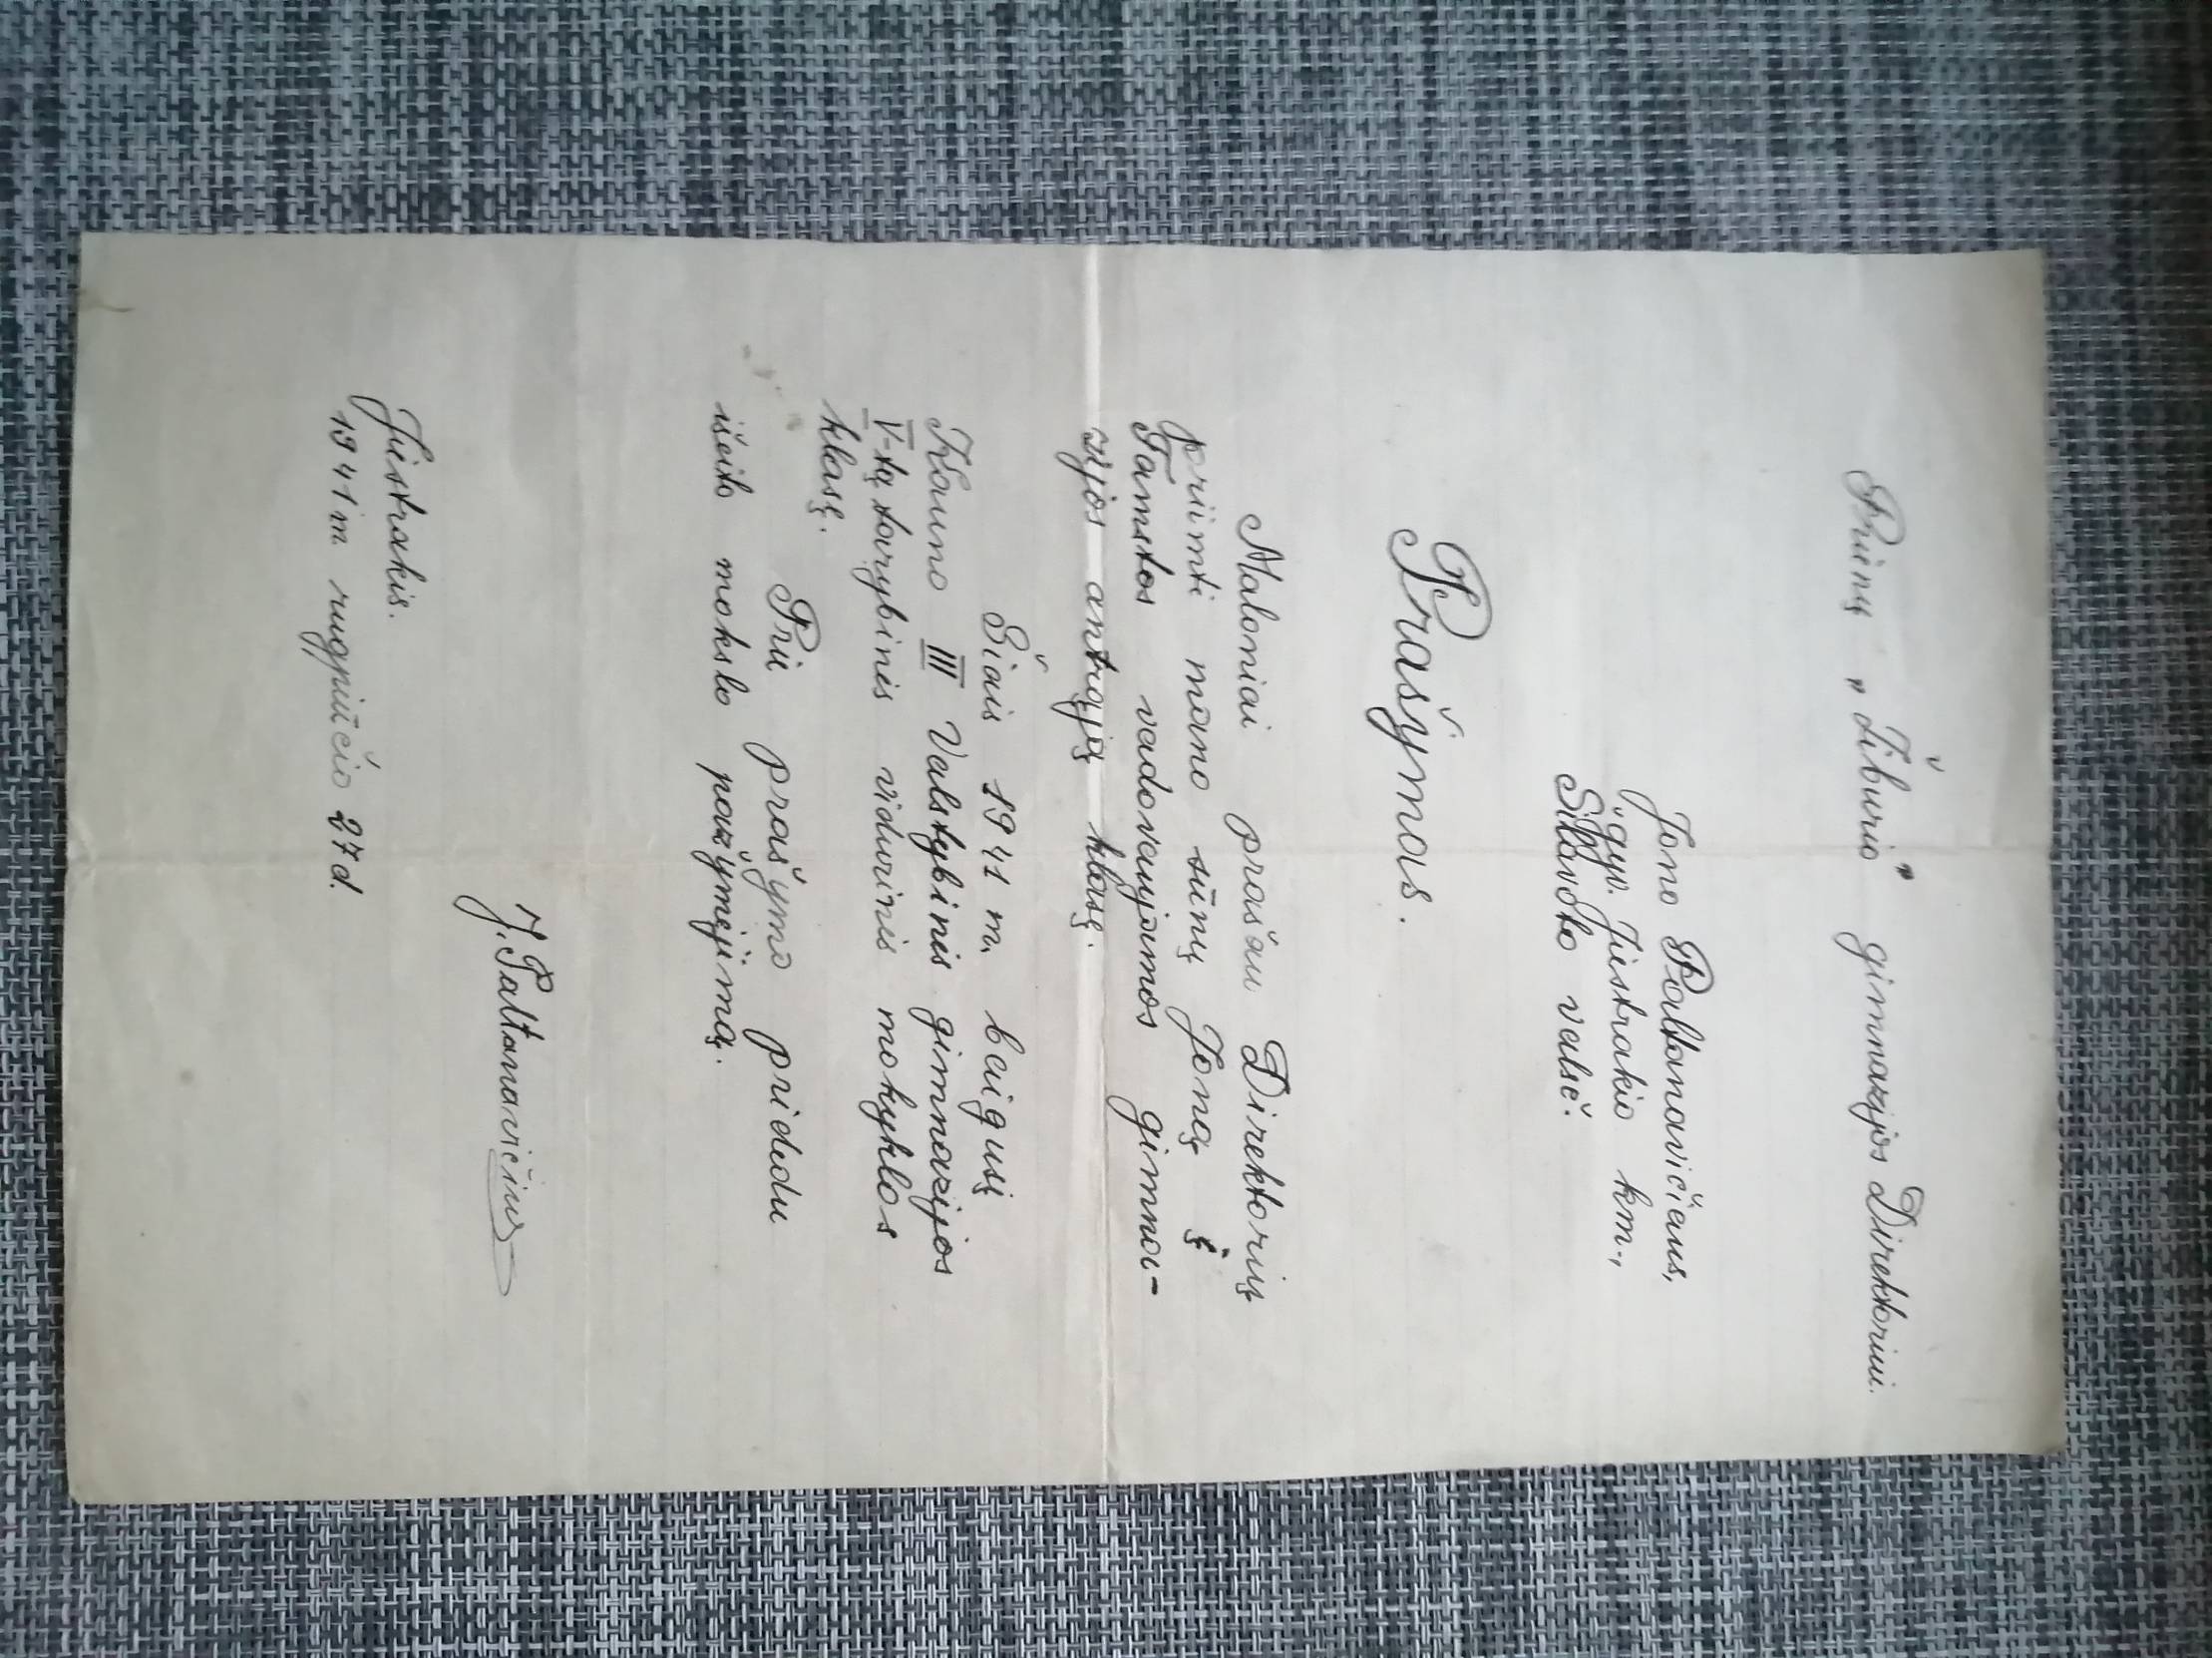 Prienų „Žiburio" gimnazijos Direktoriui.
Jono Paltanavičiaus,
gyv. Jiestrakio km.,
Šilavoto valsč.
Prašymas.
Maloniai prašau Direktorių
priimti mano sūnų Joną į
Tamstos vadovaujamos gimna-
zijos antrąją klasę.
Šiais 1941 m. baigusį
Kauno III Valstybinės gimnazijos
V-tą tarybinės vidurinės mokyklos
klasę.
Prie prašymo pridedu
išeito mokslo pažymėjimą.
J. Paltanavičius
Jiestrakis.
1941 m. rugpiūčio 27 d.